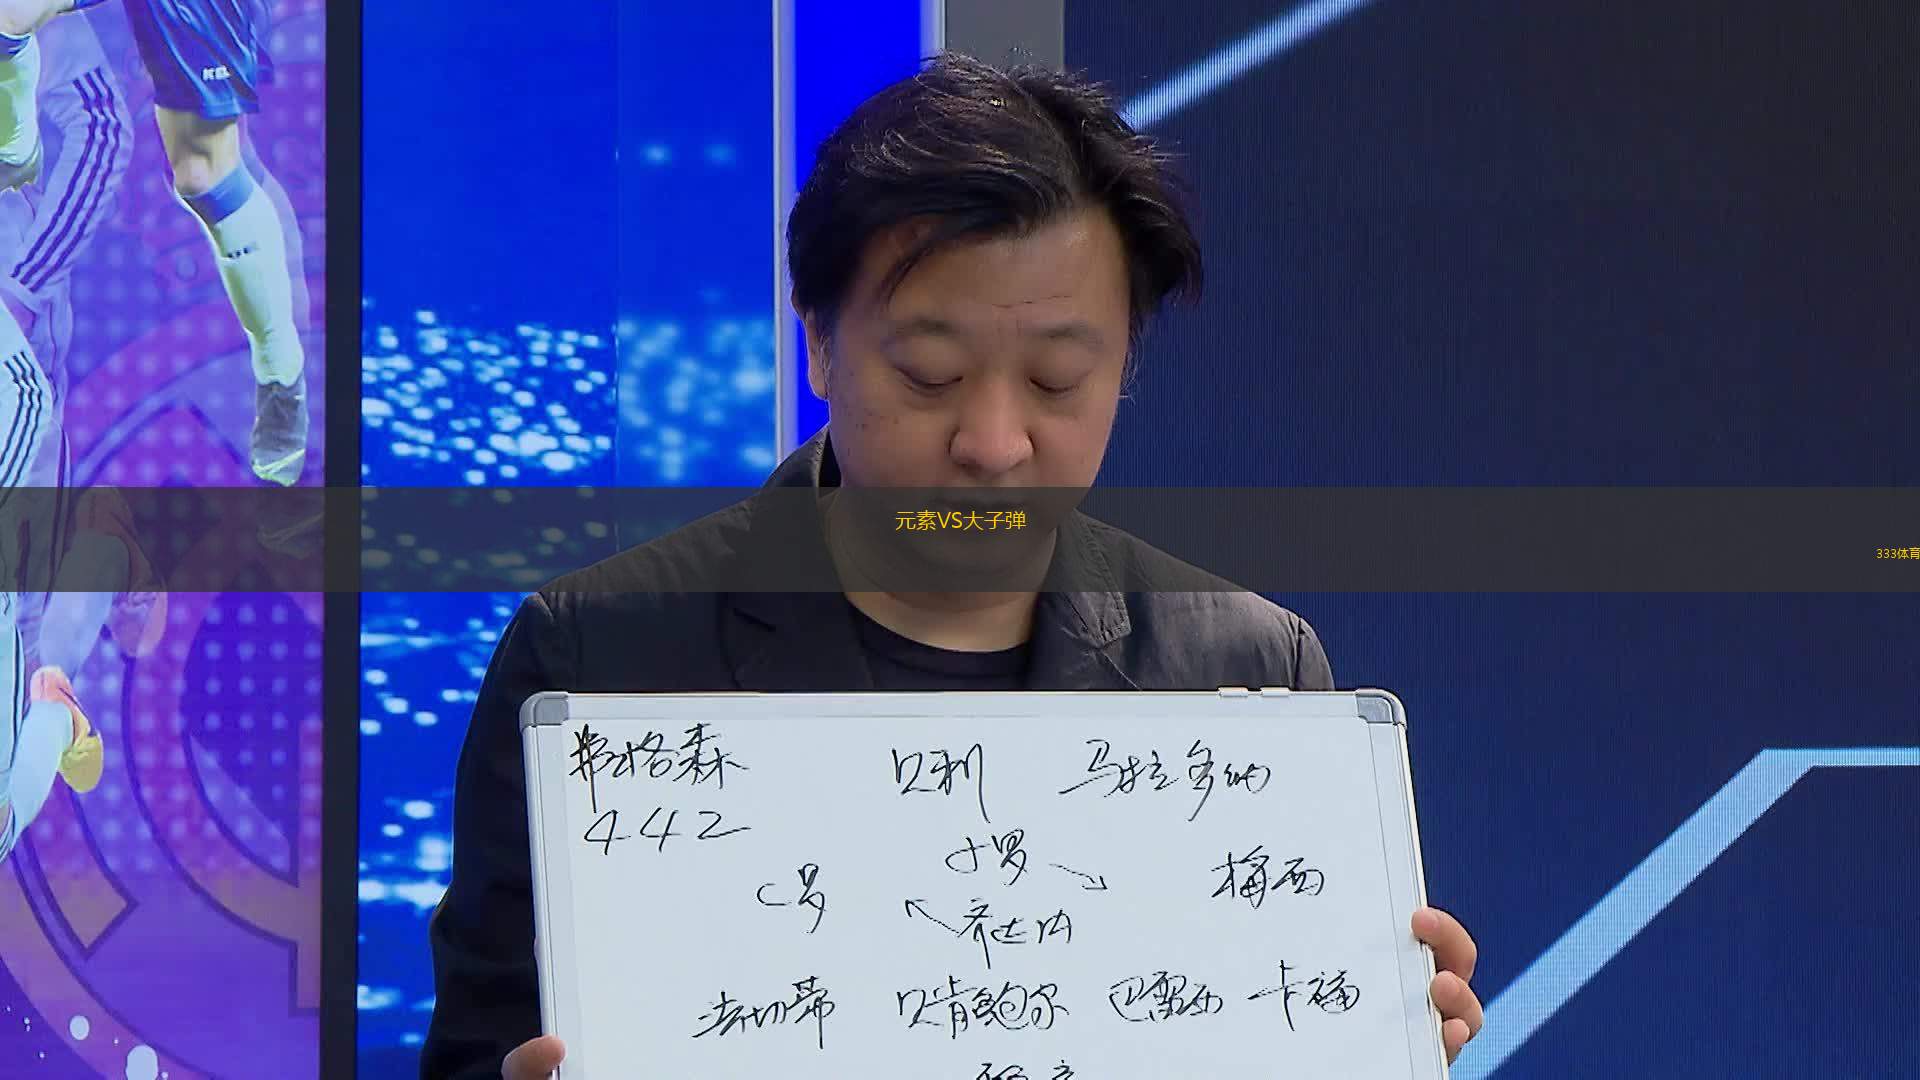 元素VS大子弹
333体育
弗格森 贝利 马拉多纳
442
小罗
C罗 梅西
齐达内
法切蒂 贝肯鲍尔 巴雷西 卡福